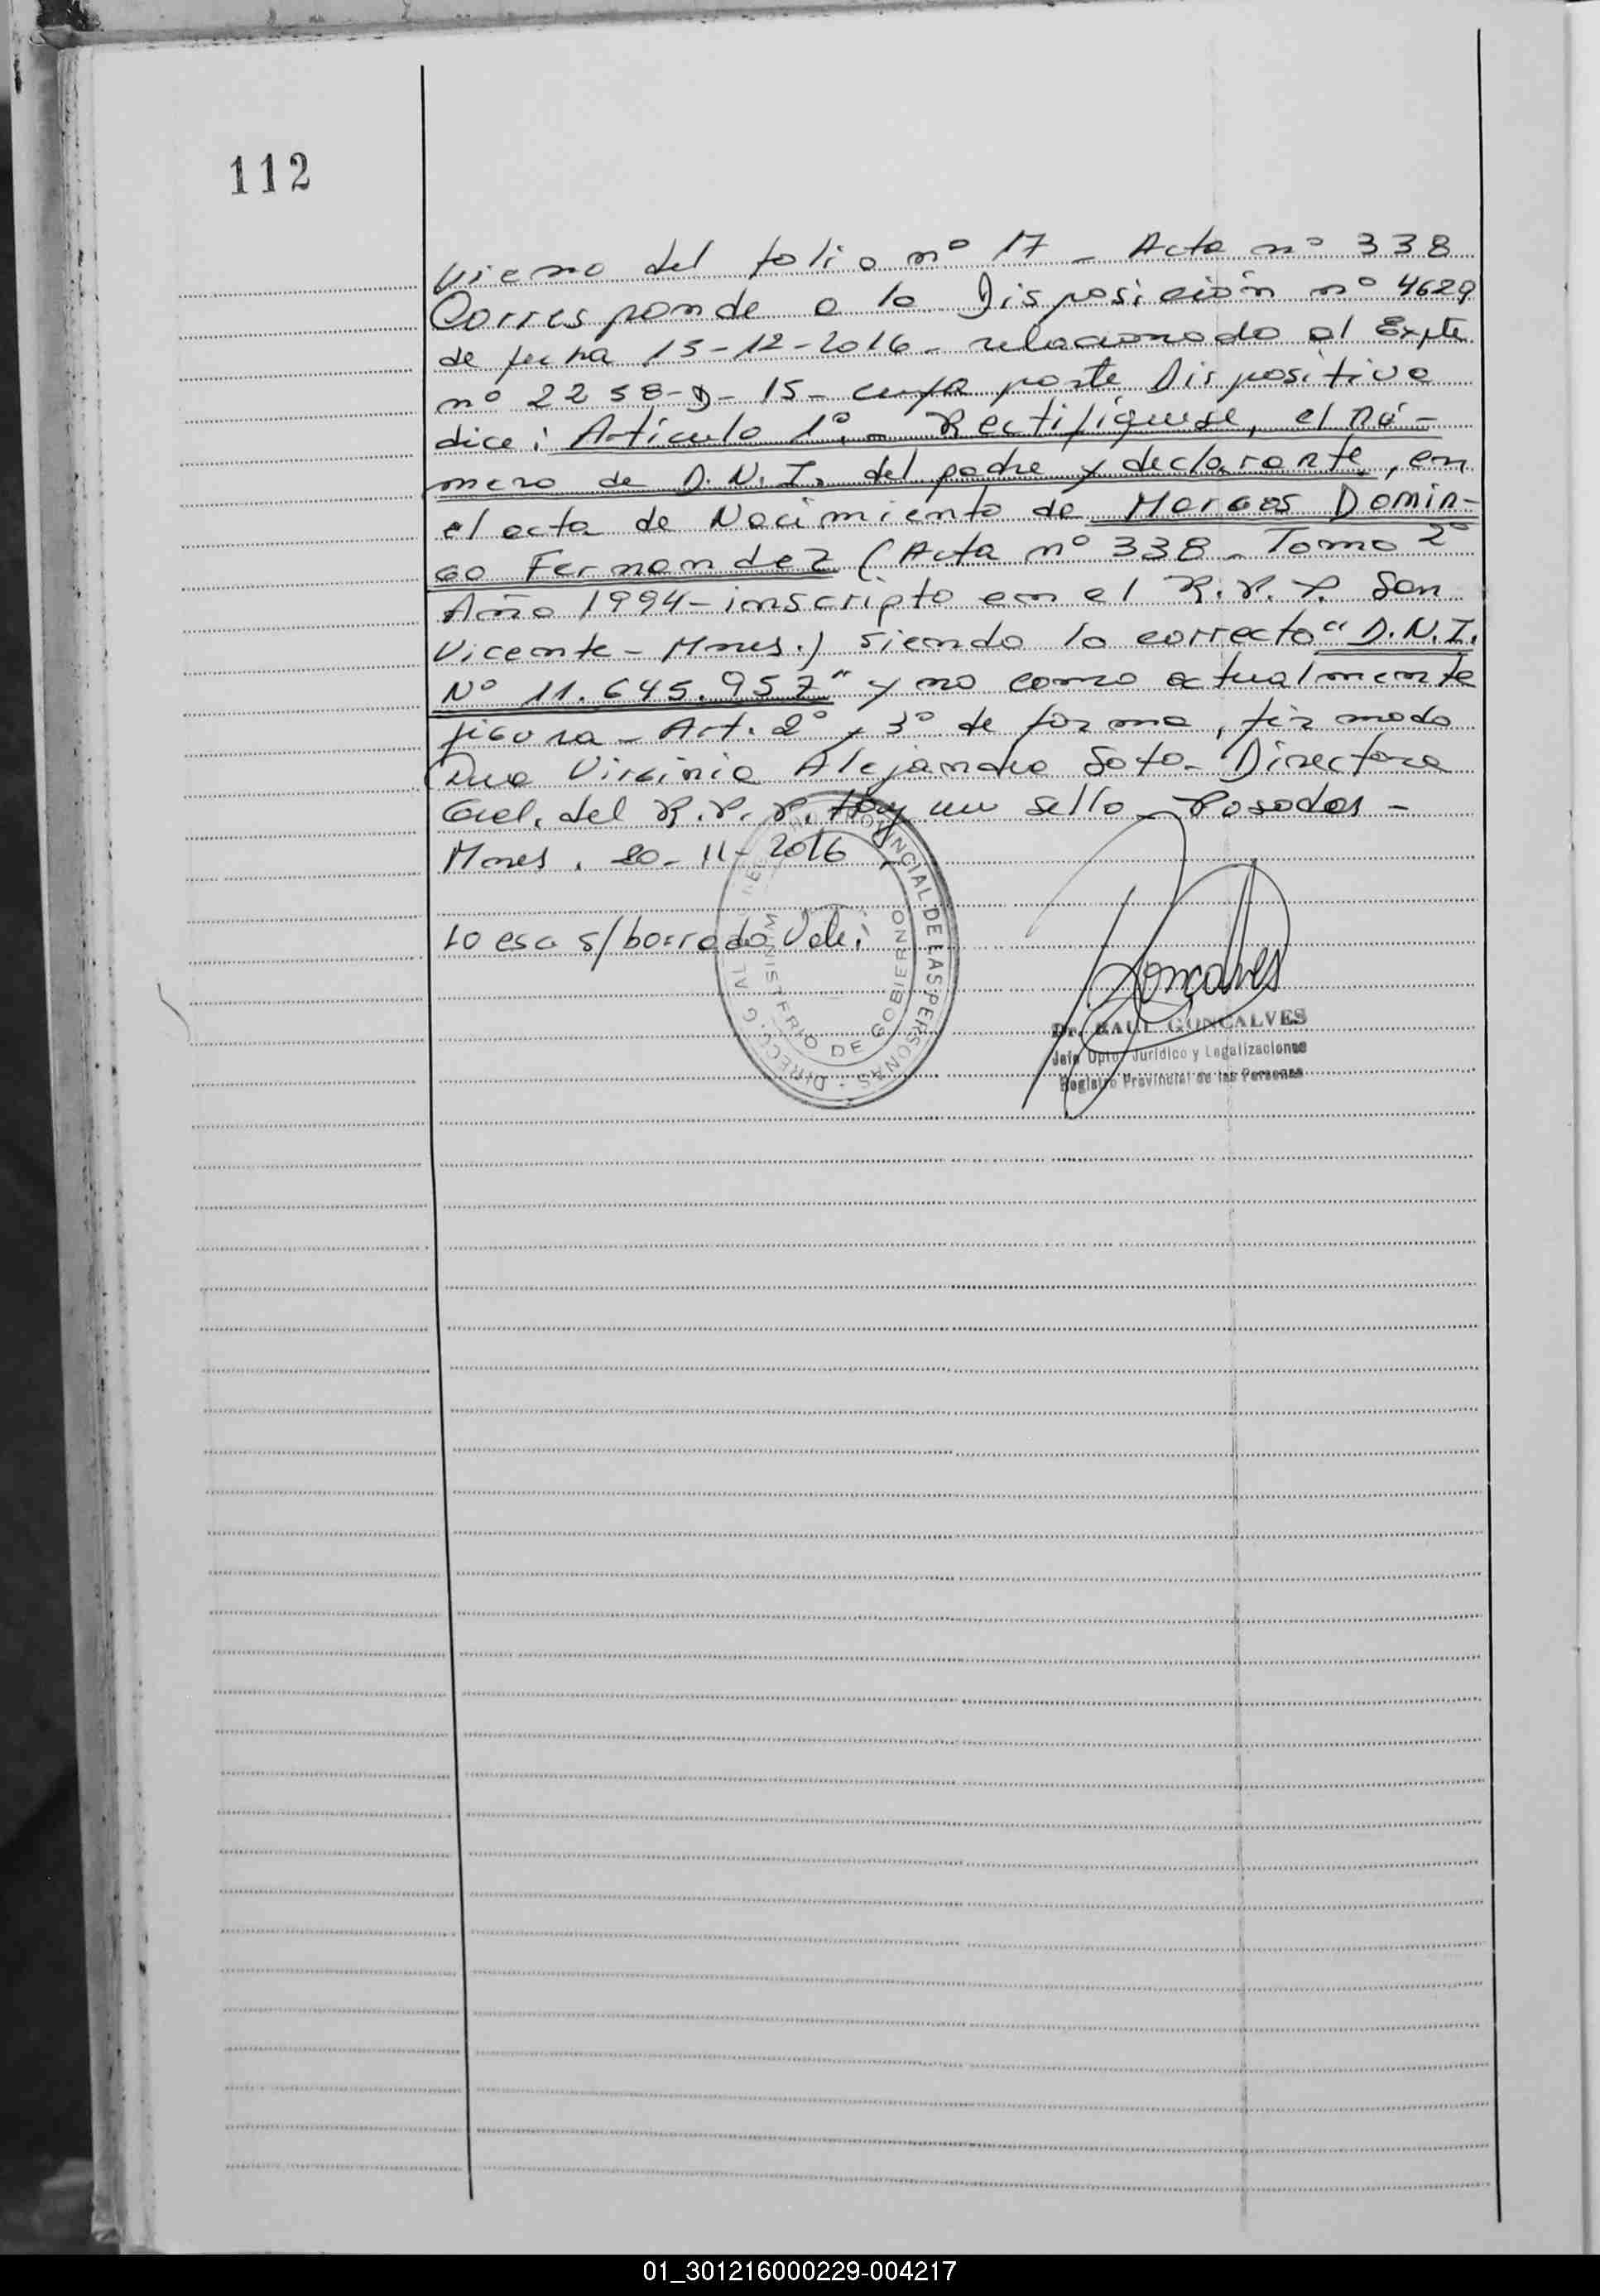 112
Viene del folio nº 17 - Acta nº 338
Corresponde a la Disposición nº 4629
de fecha 15-12-2016- relacionado al Expte
nº 2258-D-15- cuya parte Dispositiva
dice: Artículo 1º.- Rectifíquese, el nú-
mero de D.N.I. del padre y declarante, en
el acta de Nacimiento de Marcos Domin-
go Fernandez (Acta nº 338 - Tomo 2º
Año 1994- inscripto en el R.P.P. San
Vicente - Mnes.) siendo lo correcto "D.N.I.
Nº 11.645.957" y no como actualmente
figura - Art. 2º y 3º de forma, firmado
Dra Virginia Alejandra Soto - Directora
Gral. del R.P.P. Hay un sello - Posadas -
Mnes, 20-11-2016
Lo esc. s/borrado Vale:
PROVINCIAL DE LAS PERSONAS
MINISTERIO DE GOBIERNO
Goncalves
Dr. RAUL GONCALVES
Jefe Dpto. Jurídico y Legalizaciones
Registro Provincial de las Personas
01_301216000229-004217